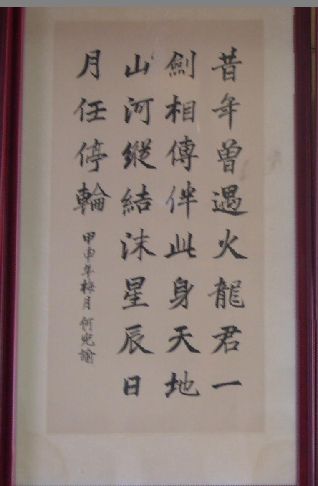 昔年曾遇火龍君一
劍相傳伴此身天地
山河縱結沫星辰日
月任停輪
甲申年梅月何